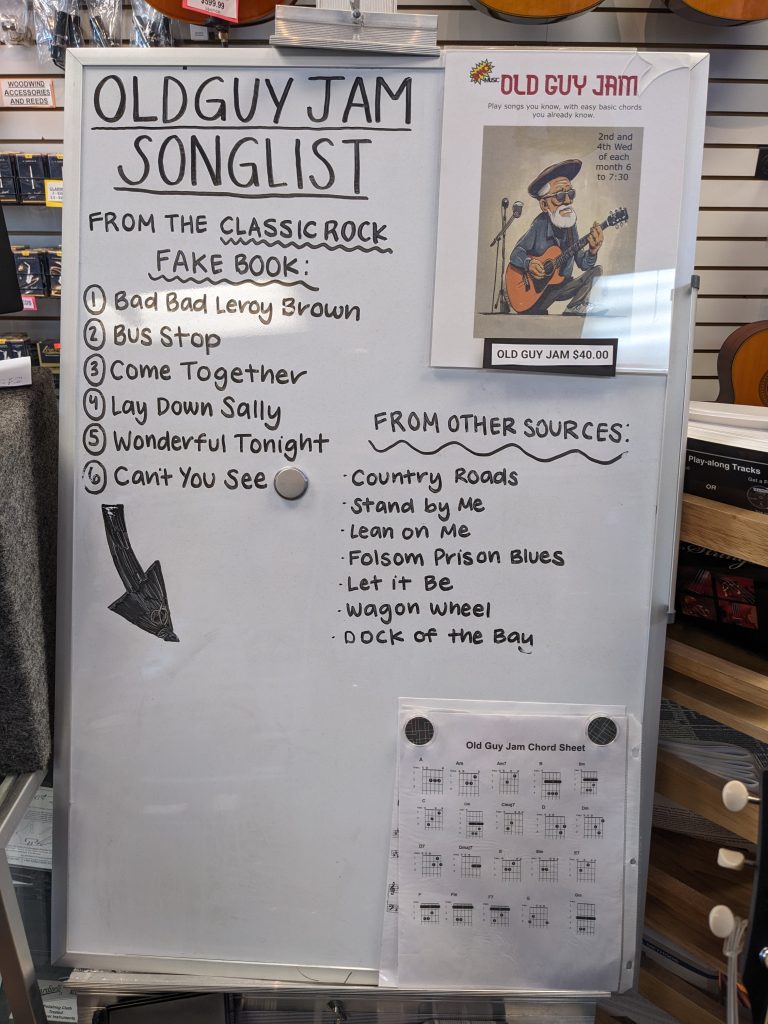 $599.99
WOODWIND
ACCESSORIES
AND REEDS
OLD GUY JAM
SONGLIST
FROM THE CLASSIC ROCK
FAKE BOOK:
1 Bad Bad Leroy Brown
2 Bus Stop
3 Come Together
4 Lay Down Sally
5 Wonderful Tonight
6 Can't You See
MUSIC
OLD GUY JAM
Play songs you know, with easy basic chords
you already know.
2nd and
4th Wed
of each
month 6
to 7:30
OLD GUY JAM $40.00
FROM OTHER SOURCES:
· Country Roads
· Stand by Me
· Lean on Me
· Folsom Prison Blues
· Let it Be
· Wagon Wheel
· Dock of the Bay
Play-along Tracks
OR
Old Guy Jam Chord Sheet
A Am Am7 B Bm
C Cmaj7 D Dm
D7 Gmaj7 E Em E7
F Fm F7 G Gm